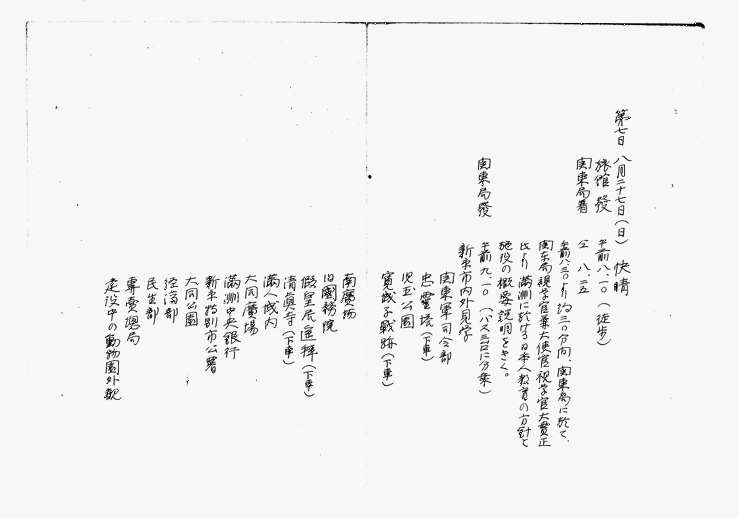 第七日 八月二十七日(日) 快晴
旅館發 午前八.一〇(徒歩)
関東局着 仝 八.二五
午前八.三〇より約三〇分間、関東局に於て、
関東局視学官兼大使館視学官大貫正
氏より満洲に於ける日本人教育の方針と
施設の概要説明をきく。
関東局發 午前九.一〇(バス三台に分乗)
新京市内外見学
関東軍司令部
忠霊塔(下車)
児玉公園
寛城子戦跡(下車)
南廣場
旧國務院
假皇居遥拝(下車)
清真寺(下車)
満人城内
大同廣場
満洲中央銀行
新京特別市公署
大同公園
経済部
民生部
専賣總局
建設中の動物園外観